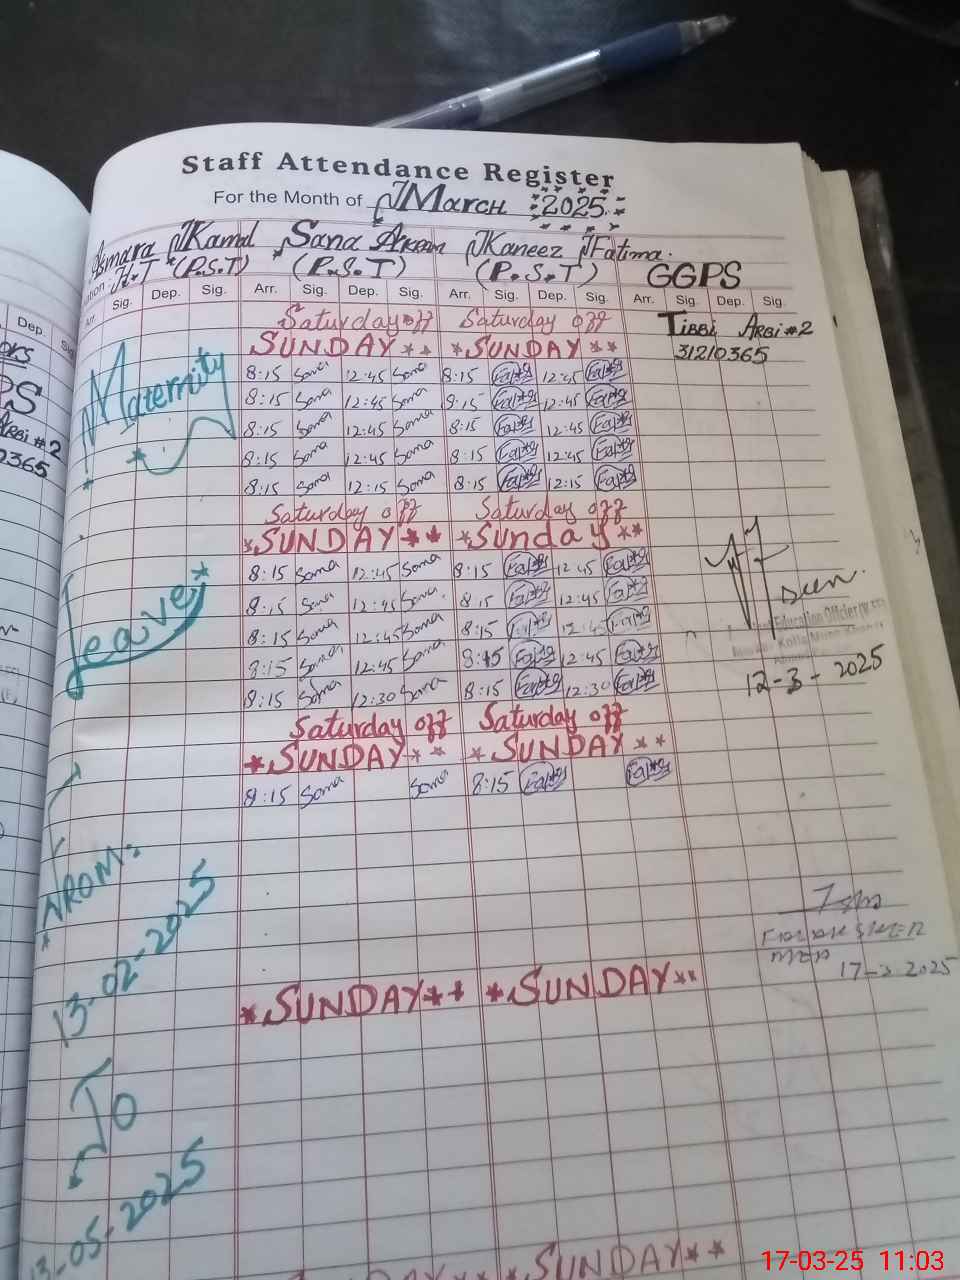 Staff Attendance Register
For the Month of March 2025
Asmara Kamal Sana Akram Kaneez Fatima.
H.T (P.S.T) (P.S.T) (P.S.T) GGPS
Arr. Sig. Dep. Sig. Arr. Sig. Dep. Sig. Arr. Sig. Dep. Sig. Arr. Sig. Dep. Sig.
Saturday off Saturday off Tibbi Arbi #2
SUNDAY SUNDAY 31210365
8:15 Sana 12:45 Sana 8:15 12:45
8:15 Sana 12:45 Sana 8:15 12:45
8:15 Sana 12:45 Sana 8:15 12:45
8:15 Sana 12:45 Sana 8:15 12:45
8:15 Sana 12:15 Sana 8:15 12:15
Saturday off Saturday off
SUNDAY Sunday
8:15 Sana 12:45 Sana 8:15 12:45
8:15 Sana 12:45 Sana 8:15 12:45
8:15 Sana 12:45 Sana 8:15 12:45
8:15 Sana 12:45 Sana 8:15 12:45
8:15 Sana 12:30 Sana 8:15 12:30
Saturday off Saturday off
SUNDAY SUNDAY
8:15 Sana Sana 8:15
SUNDAY SUNDAY
SUNDAY
Maternity
Leave
FROM:
13-02-2025
To
13-05-2025
Seen.
Education Officer
12-3-2025
17-3 2025
Dep.
PS
Arbi #2
0365
17-03-25 11:03